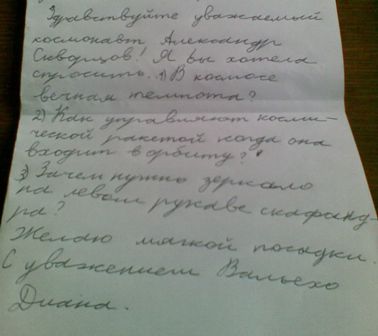 Здравствуйте уважаемый
космонавт Александр
Скворцов! Я бы хотела
спросить. 1) В космосе
вечная темнота?
2) Как управляют косми-
ческой ракетой когда она
входит в орбиту?
3) Зачем нужно зеркало
на левом рукаве скафанд-
ра?
Желаю мягкой посадки.
С уважением Вальехо
Диана.